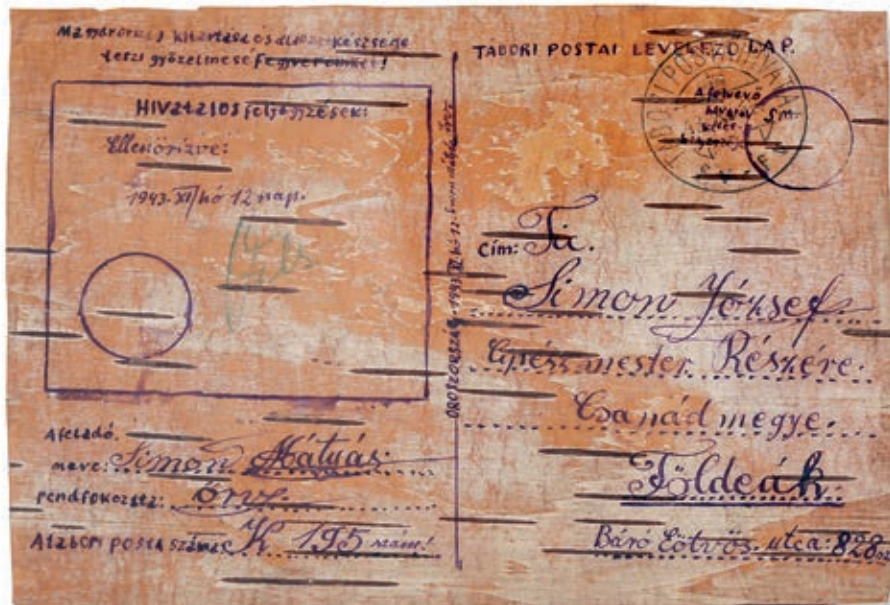 Magyarország kitartása és áldozatkészsége
teszi győzelmessé Fegyvereinket!
HIVATALOS feljegyzések:
Ellenőrizve:
1943. XI/hó 12 nap.
A feladó
neve: Simon Mátyás
rendfokozata: őrv.
A tábori posta száma K 195 szám!
OROSZORSZÁG. 1943. XI. hó 12.
TÁBORI POSTAI LEVELEZŐ LAP.
TÁBORI POSTAHIVATAL
A felvevő
hivatal
kelet-
Sm.
Cím: Tc.
Simon József
Cipészmester Részére.
Csanád megye.
Földeák.
Báró Eötvös. utca: 828